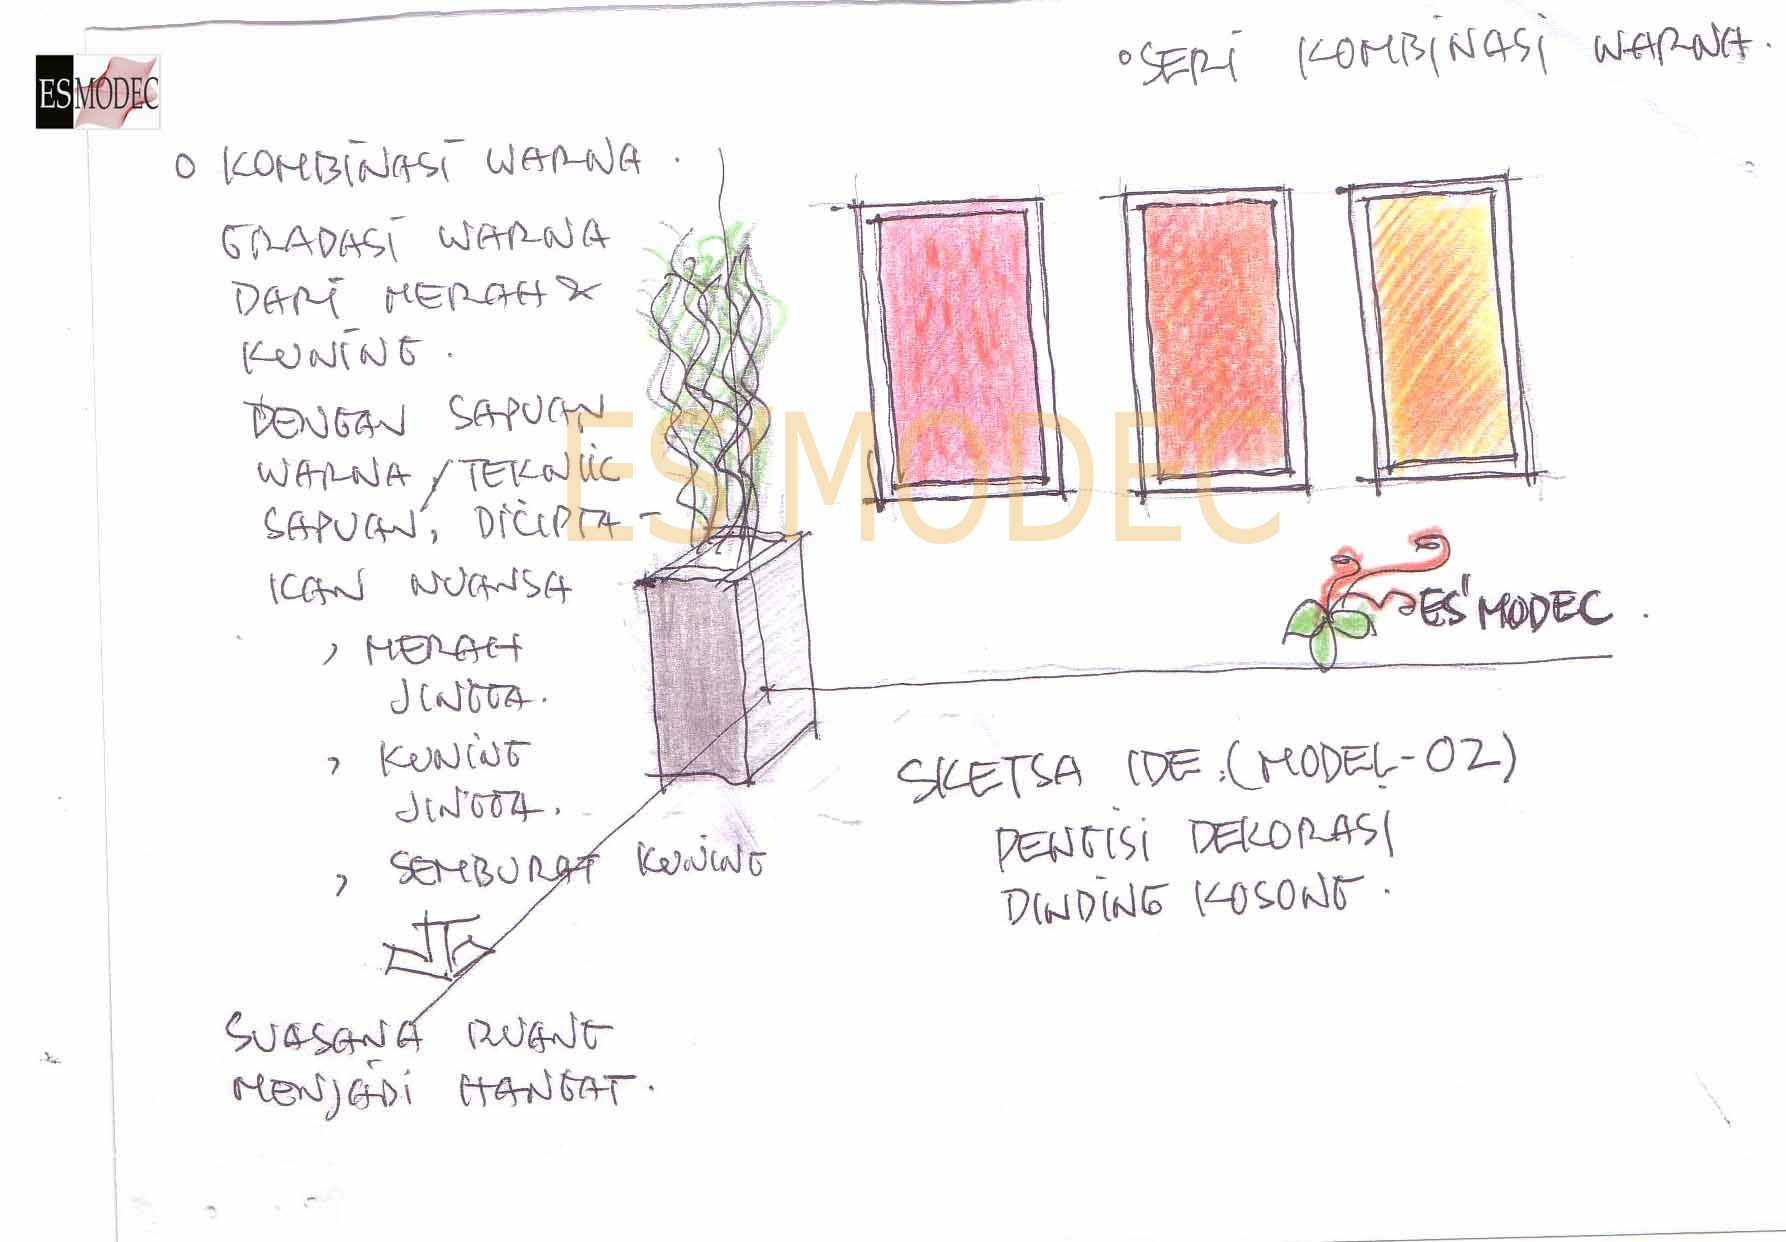 ° SERI KOMBINASI WARNA.
ESMODEC
O KOMBINASI WARNA.
GRADASI WARNA
DARI MERAH &
KUNING.
DENGAN SAPUAN
WARNA / TEKNIK
SAPUAN, DICIPTA-
KAN NUANSA
, MERAH
JINGGA.
, KUNING
JINGGA.
, SEMBURAT KUNING
SUASANA RUANG
MENJADI HANGAT.
ES'MODEC
ES'MODEC.
SKETSA IDE. (MODEL-02)
PENGISI DEKORASI
DINDING KOSONG.